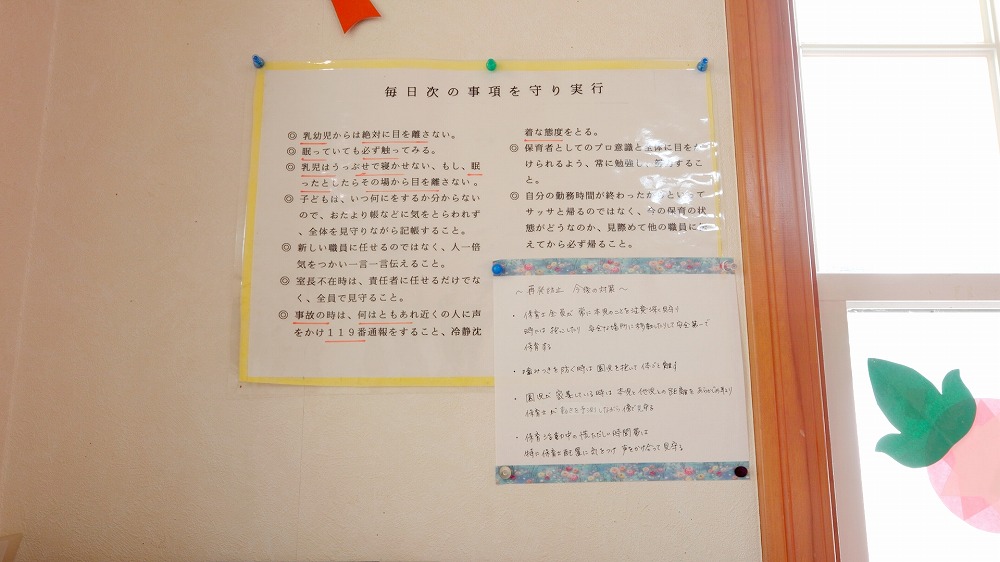 毎日次の事項を守り実行
◎ 乳幼児からは絶対に目を離さない。
◎ 眠っていても必ず触ってみる。
◎ 乳児はうっぷせで寝かせない、もし、眠
ったとしたらその場から目を離さない。
◎ 子どもは、いつ何にをするか分からない
ので、おたより帳などに気をとらわれず
、全体を見守りながら記帳すること。
◎ 新しい職員に任せるのではなく、人一倍
気をつかい一言一言伝えること。
◎ 室長不在時は、責任者に任せるだけでな
く、全員で見守ること。
◎ 事故の時は、何はともあれ近くの人に声
をかけ119番通報をすること、冷静沈
着な態度をとる。
◎ 保育者としてのプロ意識と全体に目をか
けられるよう、常に勉強し、するこ
と。
◎ 自分の勤務時間が終わったからといって
サッサと帰るのではなく、今の保育の状
態がどうなのか、見際めて他の職員に
えてから必ず帰ること。
～再発防止 今後の対策～
・保育士全員が常に本児のことを注意深く見守り
時には抱っこしたり 安全な場所に移動したりして安全第一で
保育する
・噛みつきを防ぐ時は園児を抱いて体ごと離す
・園児が密集している時は 本児と他児との距離を
保育士が動きを予測しながら傍で見守る
・保育活動中の慌ただしい時間帯は
特に保育士配置に気をつけ 声をかけ合って見守る